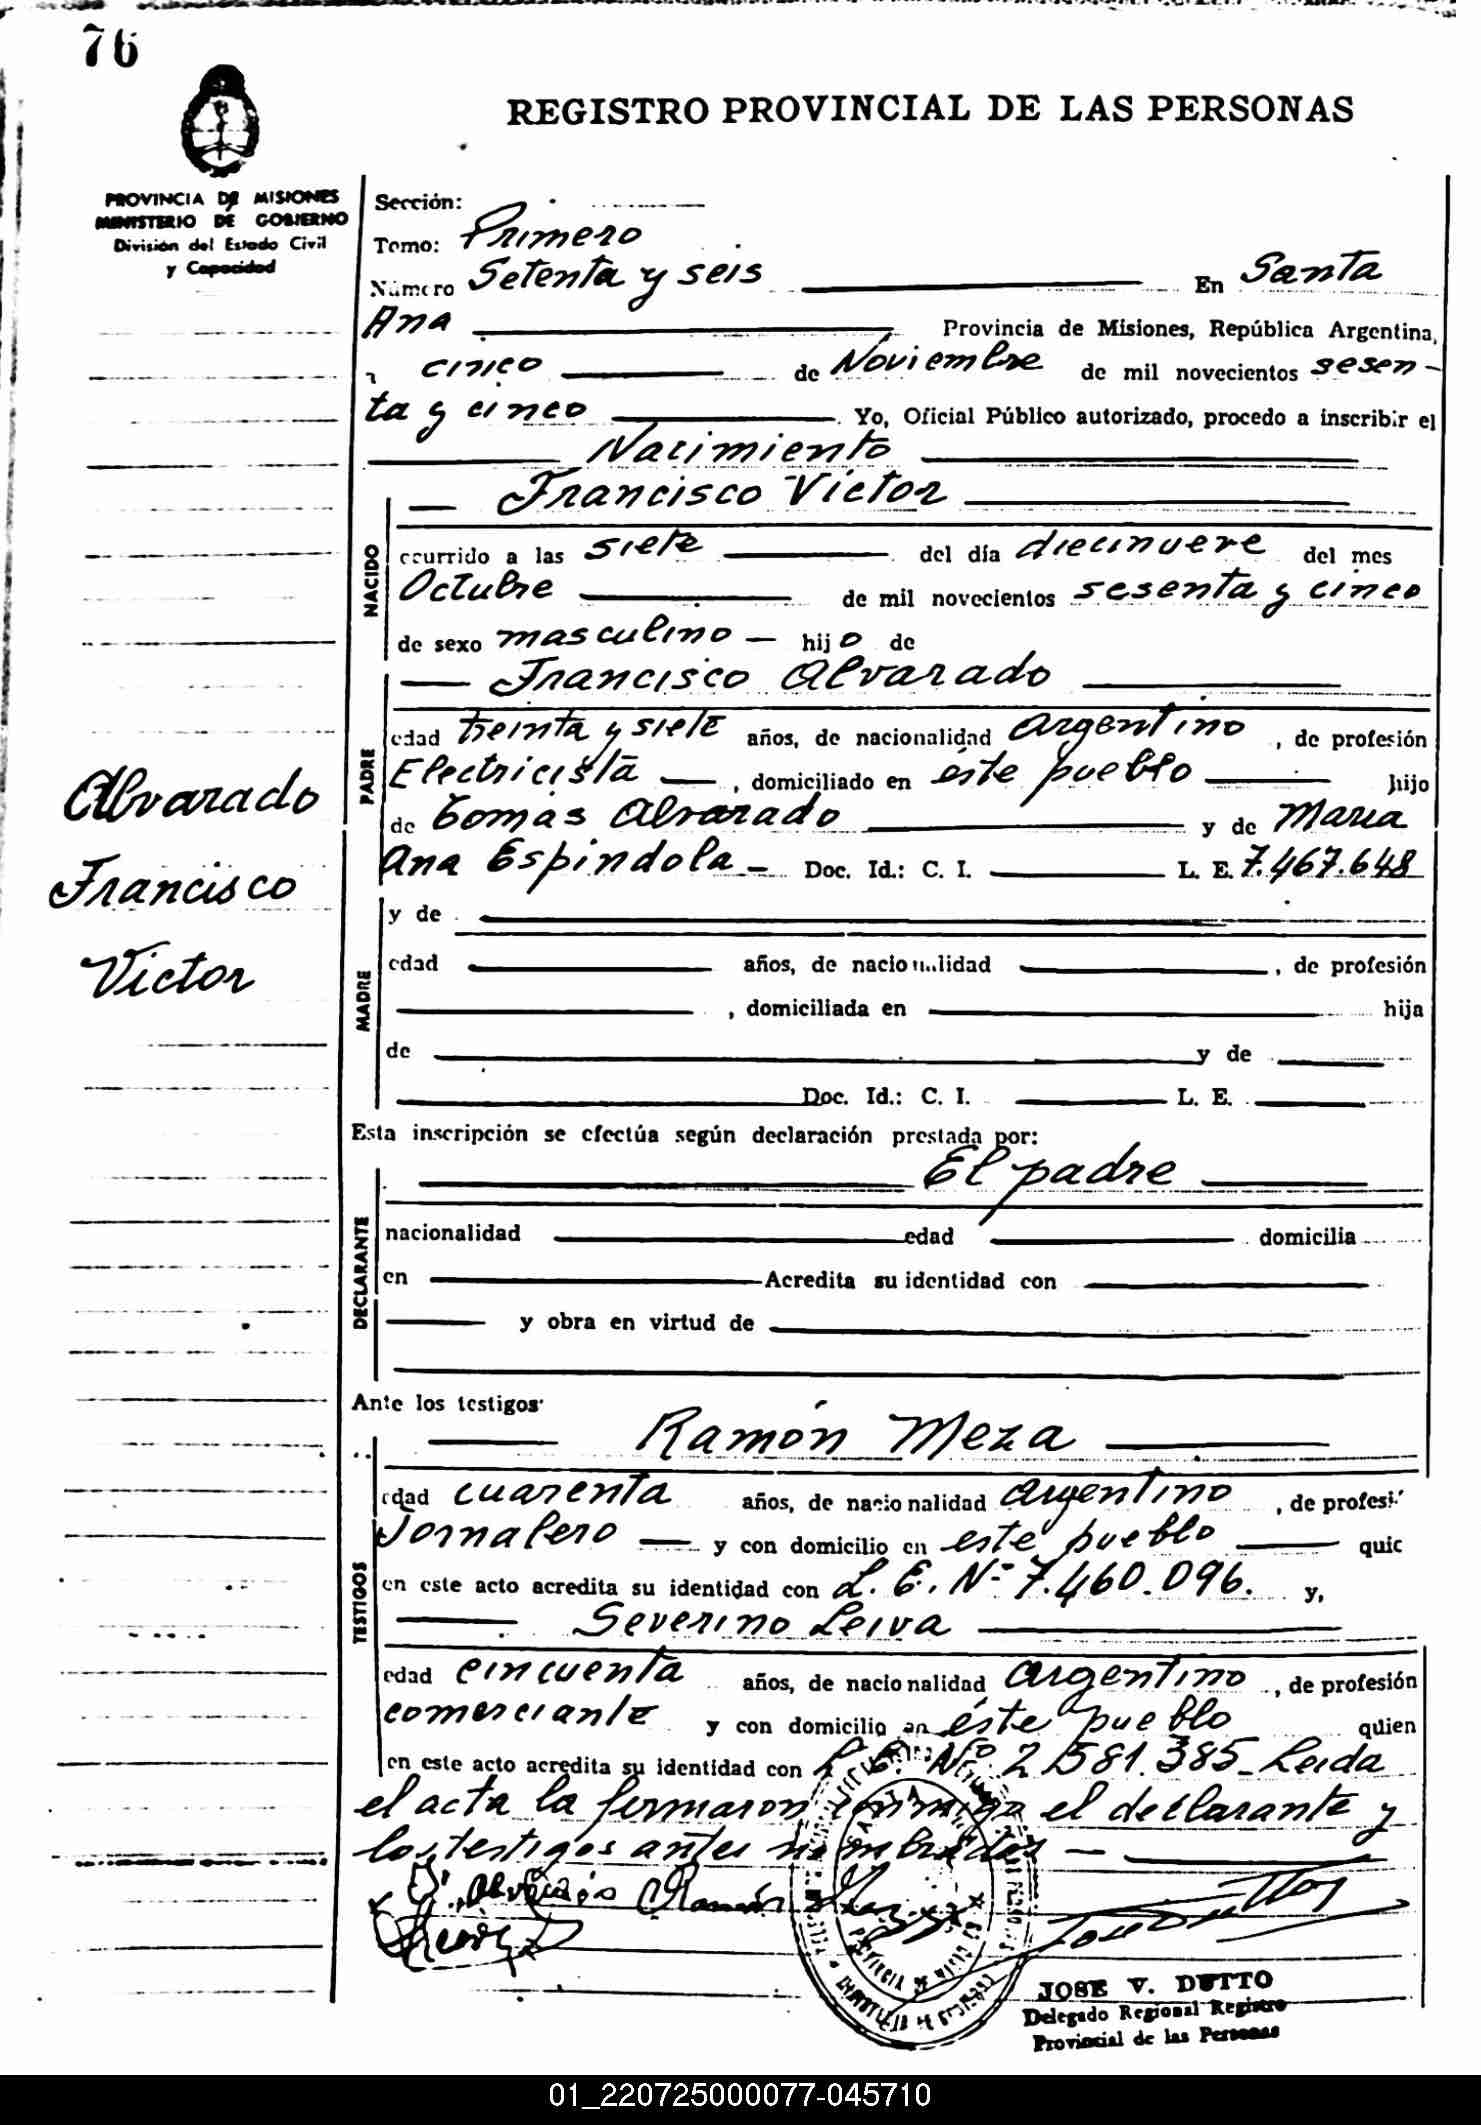 76
REGISTRO PROVINCIAL DE LAS PERSONAS
PROVINCIA DE MISIONES
MINISTERIO DE GOBIERNO
División del Estado Civil
y Capacidad
Sección:
Tomo: Primero
Número Setenta y seis En Santa
Ana Provincia de Misiones, República Argentina,
a cinco de Noviembre de mil novecientos sesen-
ta y cinco Yo, Oficial Público autorizado, procedo a inscribir el
Nacimiento
Francisco Victor
NACIDO
ocurrido a las siete del día diecinueve del mes
Octubre de mil novecientos sesenta y cinco
de sexo masculino hijo de
Francisco Alvarado
PADRE
edad treinta y siete años, de nacionalidad argentino, de profesión
Electricista, domiciliado en éste pueblo hijo
de Tomás Alvarado y de Maria
Ana Espindola Doc. Id.: C. I. L. E. 7.467.648
Alvarado
Francisco
Victor
y de
MADRE
edad años, de nacionalidad , de profesión
, domiciliada en hija
de y de
Doc. Id.: C. I. L. E.
Esta inscripción se efectúa según declaración prestada por:
El padre
DECLARANTE
nacionalidad edad domicilia
en Acredita su identidad con
y obra en virtud de
Ante los testigos
Ramón Meza
TESTIGOS
edad cuarenta años, de nacionalidad argentino, de profesi
Jornalero y con domicilio en este pueblo quie
en este acto acredita su identidad con L. E. Nº 7.460.096. y,
Severino Leiva
edad cincuenta años, de nacionalidad argentino, de profesión
comerciante y con domicilio en éste pueblo quien
en este acto acredita su identidad con L. E. Nº 2.581.385 Leida
el acta la firmaron conmigo el declarante y
los testigos antes nombrados
Alvarado Ramón Meza
JOSE V. DUTTO
Delegado Regional Registro
Provincial de las Personas
01_220725000077-045710